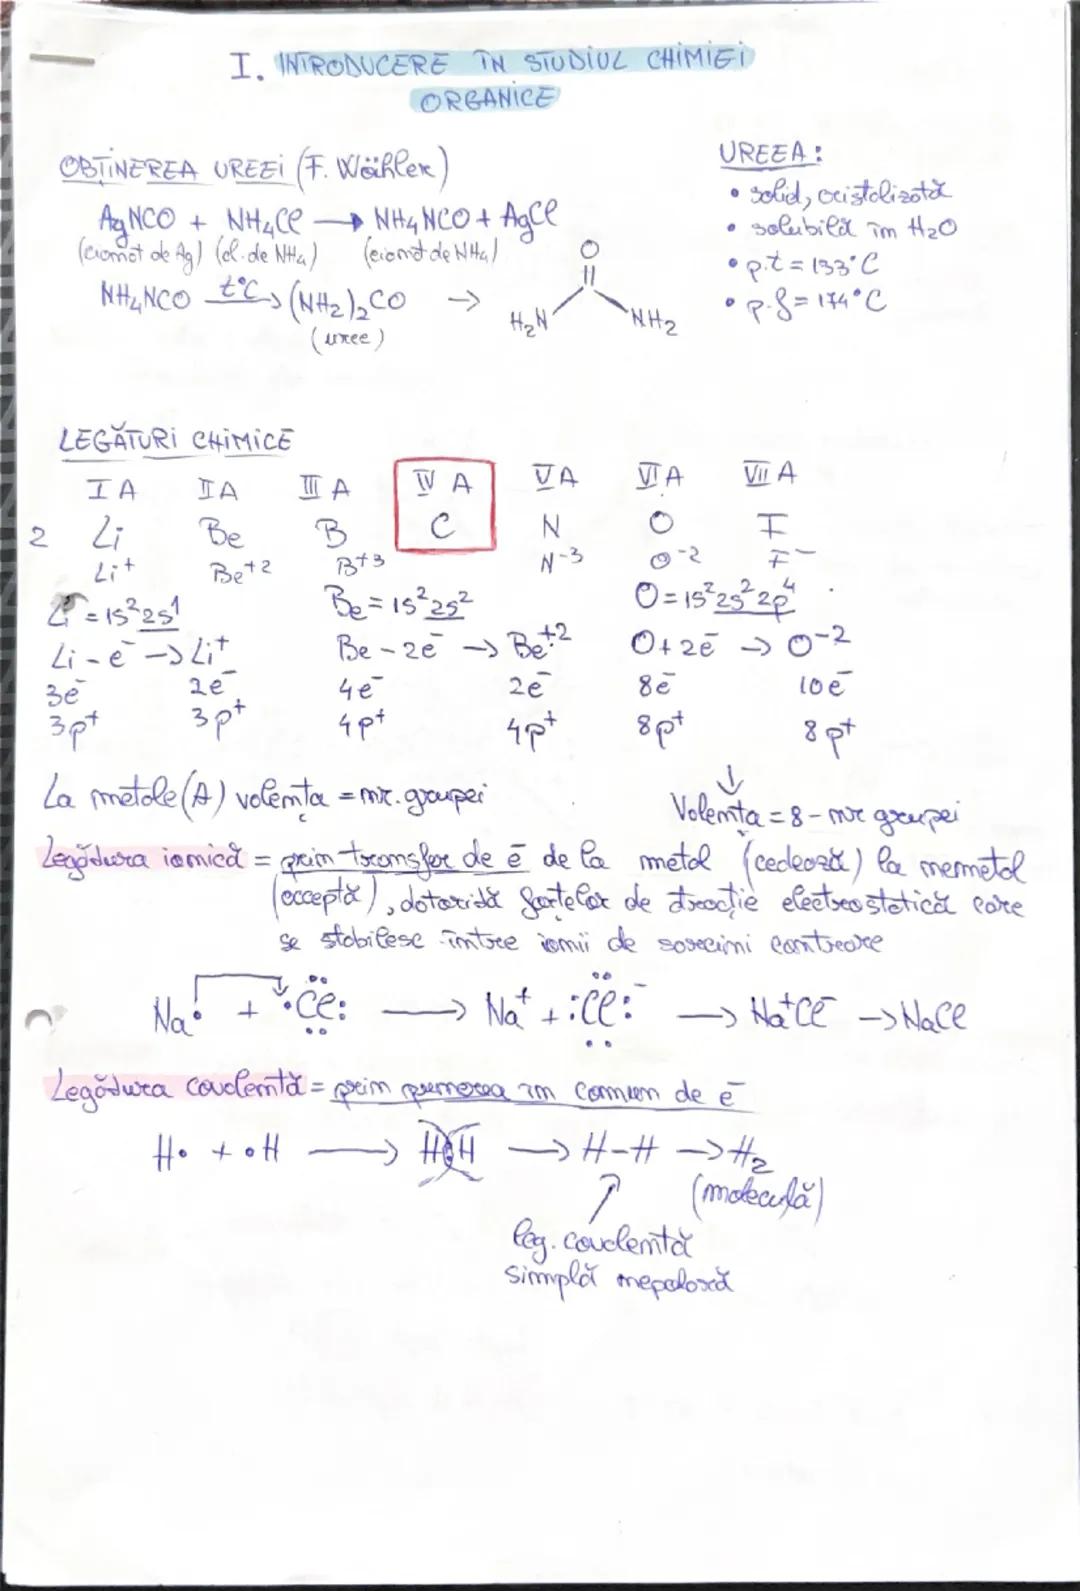 I. INTRODUCERE ÎN STUDIUL CHIMIEI
ORGANICE
OBȚINEREA UREEI (F. Wöhler)
AgNCO + NH₄Cl → NH₄NCO + AgCl
(cianat de Ag) (cl. de NH₄) (cianat de NH₄)
NH₄NCO t°C → (NH₂)₂CO →
(uree)
O
H₂N NH₂
UREEA:
• solid, cristalizată
• solubilă în H₂O
• p.t = 133°C
• p.f = 174°C
LEGĂTURI CHIMICE
I A II A III A IV A V A VI A VII A
2 Li Be B C N O F
Li⁺ Be⁺² B⁺³ N⁻³ O⁻² F⁻
Li = 1s²2s¹ Be = 1s²2s² O = 1s²2s²2p⁴
Li - e⁻ → Li⁺ Be - 2e⁻ → Be⁺² O + 2e⁻ → O⁻²
3e⁻ 2e⁻ 4e⁻ 2e⁻ 8e⁻ 10e⁻
3p⁺ 3p⁺ 4p⁺ 4p⁺ 8p⁺ 8p⁺
La metale (A) valența = nr. grupei
↓
Valența = 8 - nr grupei
Legătura ionică = prin transfer de e⁻ de la metal (cedează) la nemetal
(acceptă), datorită forțelor de atracție electrostatică care
se stabilesc între ionii de sarcini contrare
Na• + •Cl: → Na⁺ + :Cl:⁻ → Na⁺Cl⁻ → NaCl
Legătura covalentă = prin punerea în comun de e⁻
H• + •H → H:H → H-H → H₂
(moleculă)
leg. covalentă
simplă nepolară